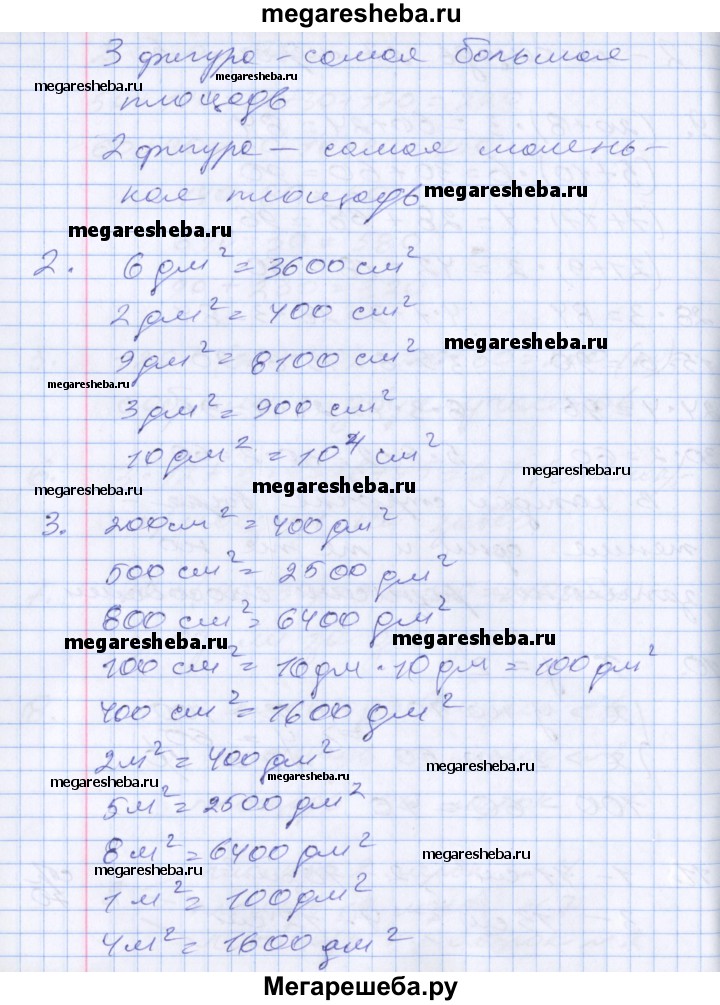 megaresheba.ru
3 фигура - самая большая
megaresheba.ru megaresheba.ru
площадь
2 фигура — самая малень-
кая площадь megaresheba.ru
megaresheba.ru
2. 6 дм² = 3600 см²
2 дм² = 400 см²
megaresheba.ru
9 дм² = 8100 см²
megaresheba.ru
3 дм² = 900 см²
10 дм² = 10⁴ см²
megaresheba.ru
megaresheba.ru megaresheba.ru
3. 200 см² = 400 дм²
500 см² = 2500 дм²
800 см² = 6400 дм²
megaresheba.ru megaresheba.ru
100 см² = 10 дм · 10 дм = 100 дм²
400 см² = 1600 дм²
2 м² = 400 дм²
megaresheba.ru megaresheba.ru megaresheba.ru
5 м² = 2500 дм²
8 м² = 6400 дм²
megaresheba.ru megaresheba.ru
1 м² = 100 дм²
4 м² = 1600 дм²
Мегарешеба.ру